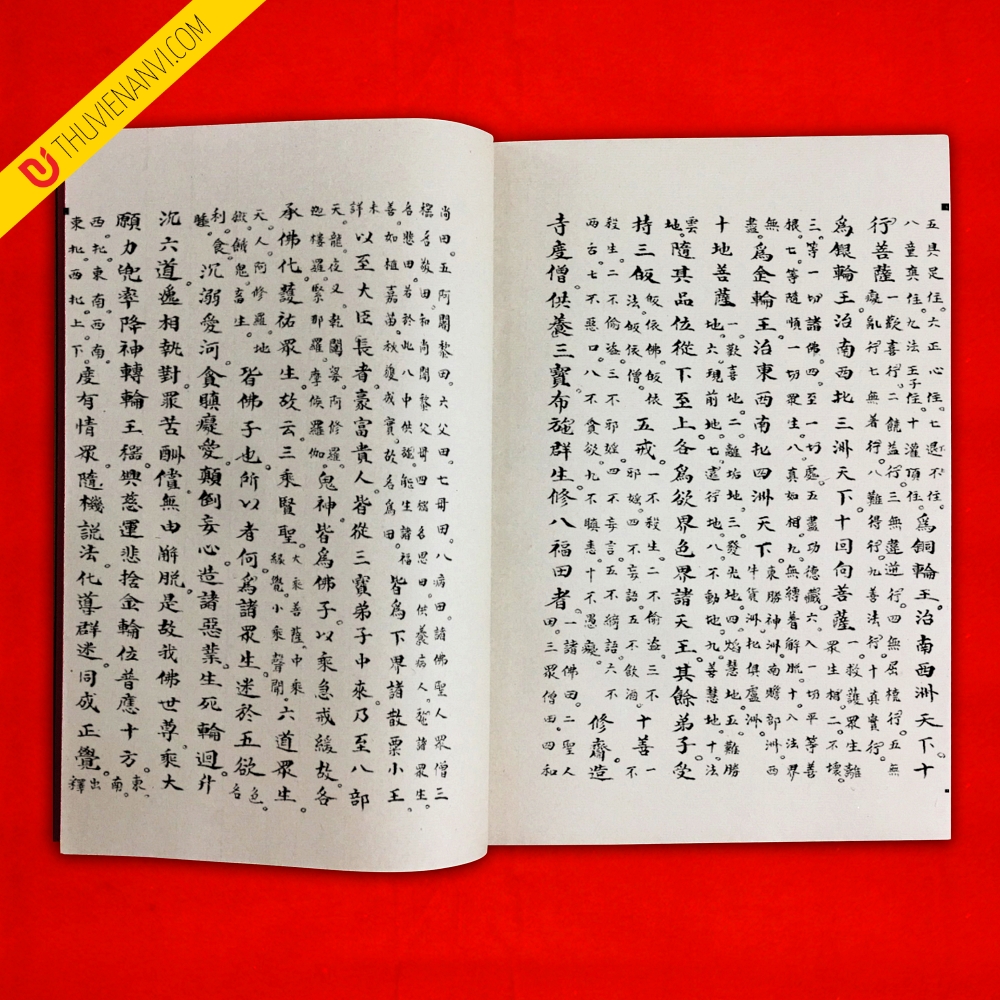 THUVIENANVI.COM
五具足住。六正心住。七退不住。
八童真住。九法王子住。十灌頂住。
爲銅輪王治南西洲天下。十
行菩薩
一歡喜行。二饒益行。三無違逆行。四無屈橈行。五無
癡亂行。七無着行。八難得行。九善法行。十真實行。
爲銀輪王治南西北三洲天下。十回向菩薩
一救護眾生離
眾生相。二不壞。
三等一切諸佛。四至一切處。五盡功德藏。六入一切平等善
根。七等隨順一切眾生。八真如相。九無縛着解脫。十入法界
無
盡。
爲金輪王治東西南北四洲天下
東勝神洲南贍部洲西
牛貨洲北俱盧洲。
十地菩薩
一歡喜地。二離垢地。三發光地。四焰慧地。五難勝
地。六現前地。七遠行地。八不動地。九善慧地。十法
雲
地。
隨其品位從下至上各爲欲界色界諸天王其餘弟子受
持三皈
皈依佛皈依
法皈依僧。
五戒
一不殺生。二不偷盜。三不
邪婬。四不妄語。五不飲酒。
十善
一
不
殺生。二不偷盜。三不邪婬。四不妄言。五不綺語。六不
兩舌。七不惡口。八不貪欲。九不瞋恚。十不愚癡。
修齋造
寺度僧供養三寶布施群生修八福田者
一諸佛田。二聖人
田。三眾僧田。四和
尚田。五阿闍黎田。六父田。七母田。八病田。諸佛聖人眾僧三
種名敬田。和尚闍黎父母四種名恩田。供養病人。諸眾生。
名悲田。若於此八中供養能生諸福
善如植嘉苗秋穫成實故名爲田。
皆爲下界諸散粟小王
未
詳
以至大臣長者豪富貴人皆從三寶弟子中來乃至八部
天龍夜叉乾闥婆阿修羅。
迦樓羅緊那羅摩侯羅伽。
鬼神皆爲佛子以乘急戒緩故各
承佛化護祐眾生故云三乘賢聖
大乘菩薩中乘
緣覺小乘聲聞。
六道眾生
天人阿修羅地
獄餓鬼畜生。
皆佛子也所以者何爲諸眾生迷於五欲
色
名
利
睡
食。
沉溺愛河貪瞋癡愛顛倒妄心造諸惡業生死輪迴升
沉六道遞相執對眾苦酬償無由解脫是故我佛世尊乘大
願力兜率降神轉輪王稱興慈運悲捨金輪位普應十方
東
南
西北東南西南
東北西北上下。
度有情眾隨機說法化導群迷同成正覺
出
釋